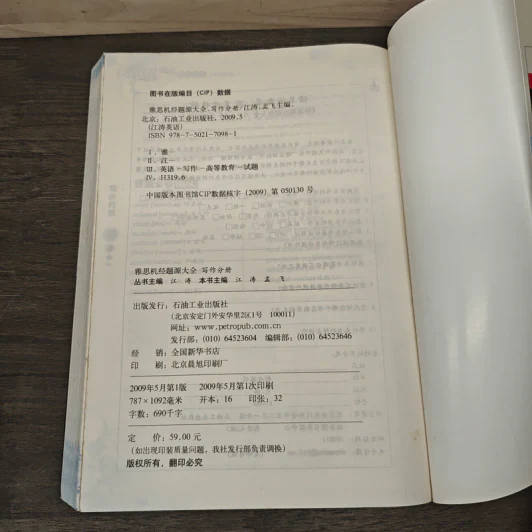 图书在版编目（CIP）数据
雅思机经题源大全.写作分册/江涛,孟飞主编.
北京：石油工业出版社，2009.5
（江涛英语）
ISBN 978-7-5021-7098-1
Ⅰ.雅…
Ⅱ.江…
Ⅲ.英语－写作－高等教育－试题
Ⅳ.H319.6
中国版本图书馆CIP数据核字（2009）第 050130 号
雅思机经题源大全 写作分册
丛书主编 江 涛 本书主编 江 涛 孟 飞
出版发行：石油工业出版社
（北京安定门外安华里2区1号 100011）
网址：www.petropub.com.cn
发行部：(010) 64523604 编辑部：(010) 64523646
经 销：全国新华书店
印 刷：北京晨旭印刷厂
2009年5月第1版 2009年5月第1次印刷
787×1092毫米 开本：16 印张：32
字数：690千字
定 价：59.00 元
（如出现印装质量问题，我社发行部负责调换）
版权所有，翻印必究